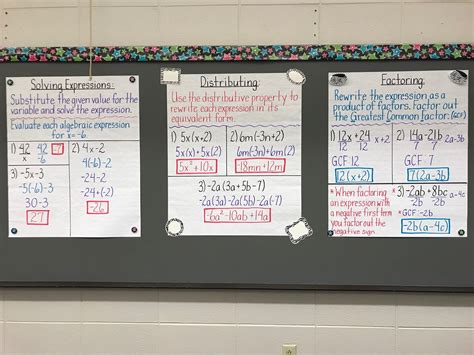 Solving Expressions:
Substitute the given value for the
variable and solve the expression.
Evaluate each algebraic expression
for x=-6
1) 42 42 -7
x -6
2) 4x-2
4(-6)-2
-24-2
-24+(-2)
-26
3) -5x-3
-5(-6)-3
30-3
27
Distributing:
Use the distributive property to
rewrite each expression in its
equivalent form.
1) 5x(x+2)
5x(x) 5x(2)
5x²+10x
2) 6m(-3n+2)
6m(-3n) 6m(2)
-18mn+12m
3) -2a(3a+5b-7)
-2a(3a) -2a(5b) -2a(-7)
-6a²-10ab+14a
Factoring:
Rewrite the expression as a
product of factors. Factor out
the Greatest Common Factor: (GCF)
1) 12x+24 x+2
12 12
GCF: 12
12(x+2)
2) 14a-21b 2a-3b
7 7
GCF: 7
7(2a-3b)
*When factoring
an expression with
a negative first term
you factor out the
negative sign.
3) -2ab+8bc a-4c
-2b -2b
GCF: -2b
-2b(a-4c)